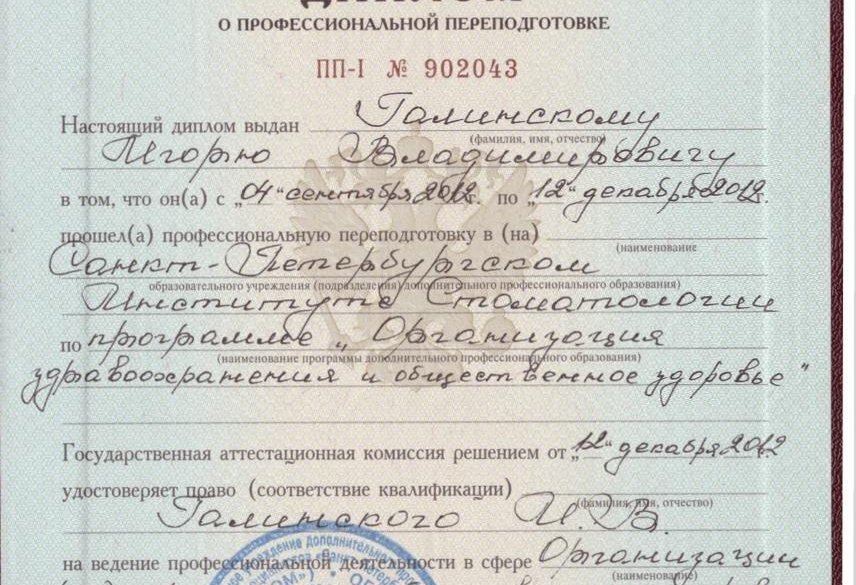 ДИПЛОМ
О ПРОФЕССИОНАЛЬНОЙ ПЕРЕПОДГОТОВКЕ
ПП-I № 902043
Настоящий диплом выдан Галинскому
(фамилия, имя, отчество)
Игорю Владимировичу
в том, что он(а) с „04“ сентября 2012г. по „12“ декабря 2012г.
прошел(а) профессиональную переподготовку в (на)
(наименование
Санкт-Петербургском
образовательного учреждения (подразделения) дополнительного профессионального образования)
Институте Стоматологии
по программе „Организация
(наименование программы дополнительного профессионального образования)
здравоохранения и общественное здоровье"
Государственная аттестационная комиссия решением от „12“ декабря 2012
удостоверяет право (соответствие квалификации)
(фамилия, имя, отчество)
Галинского И.В.
на ведение профессиональной деятельности в сфере Организации
(наименование)